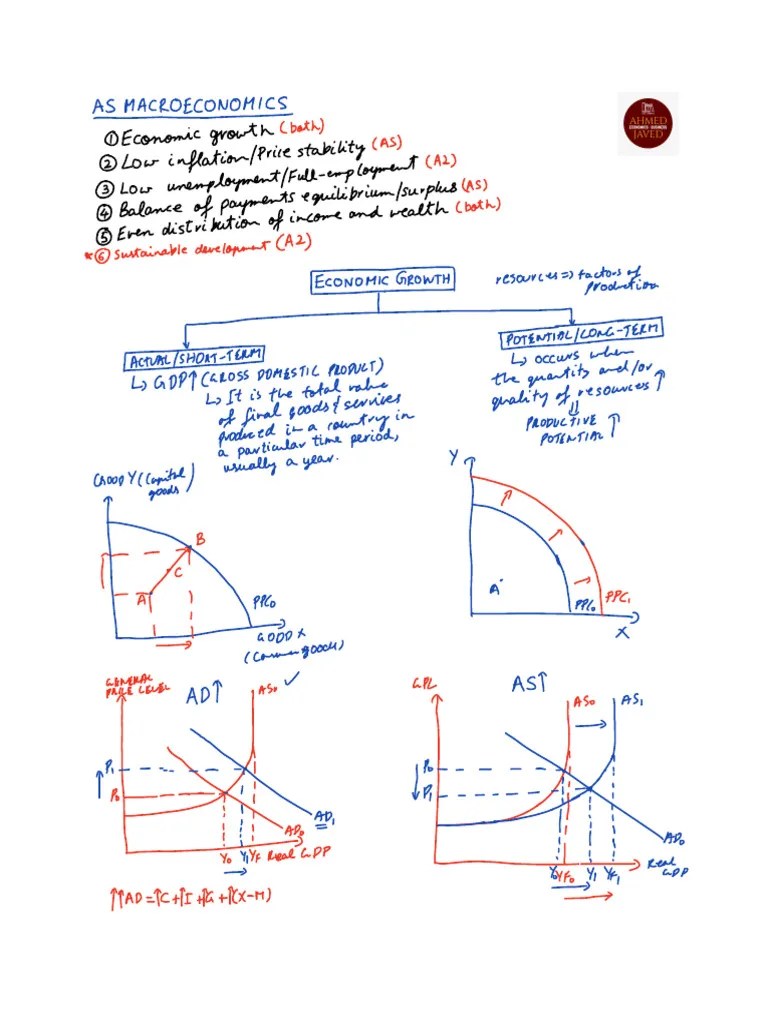 AS MACROECONOMICS
① Economic growth (both)
② Low inflation/Price stability (AS)
③ Low unemployment/Full-employment (A2)
④ Balance of payments equilibrium/surplus (AS)
⑤ Even distribution of income and wealth (both)
*⑥ Sustainable development (A2)
AHMED
ECONOMICS BUSINESS
JAVED
ECONOMIC GROWTH
resources => factors of
production
ACTUAL/SHORT-TERM
↳ GDP↑ (GROSS DOMESTIC PRODUCT)
↳ It is the total value
of final goods & services
produced in a country in
a particular time period,
usually a year.
POTENTIAL/LONG-TERM
↳ occurs when
the quantity and/or
quality of resources ↑
⇓
PRODUCTIVE
POTENTIAL ↑
GOOD Y (Capital
goods)
B
C
A
PPC₀
GOOD X
(Consumer goods)
Y
A
PPC₀
PPC₁
X
GENERAL
PRICE LEVEL
AD↑
AS₀ ✓
P₁
P₀
AD₁
AD₀
Y₀
Y₁
YF
Real GDP
↑↑AD = ↑C + ↑I + ↑G + ↑(X-M)
GPL
AS↑
AS₀
AS₁
P₀
P₁
AD₀
Y₀
YF₀
Y₁
YF₁
Real
GDP